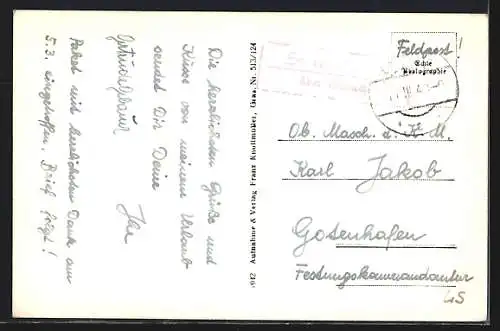 Die herzlichsten Grüße und
Küsse von meinem Urlaub
sendet Dir Deine
Paket mit herzlichsten Dank am
5.3. eingetroffen. Brief folgt!
942 Aufnahme & Verlag Franz Knollmüller, Graz, Nr. 513/124
Feldpost!
Echte
Photographie
Ob. Masch. d. K.M.
Karl Jakob
Gotenhafen
Festungskommandantur